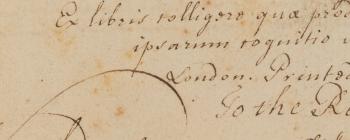 Ex libris colligere quæ prod
ipsarum cognitio
London. Printed
To the Re